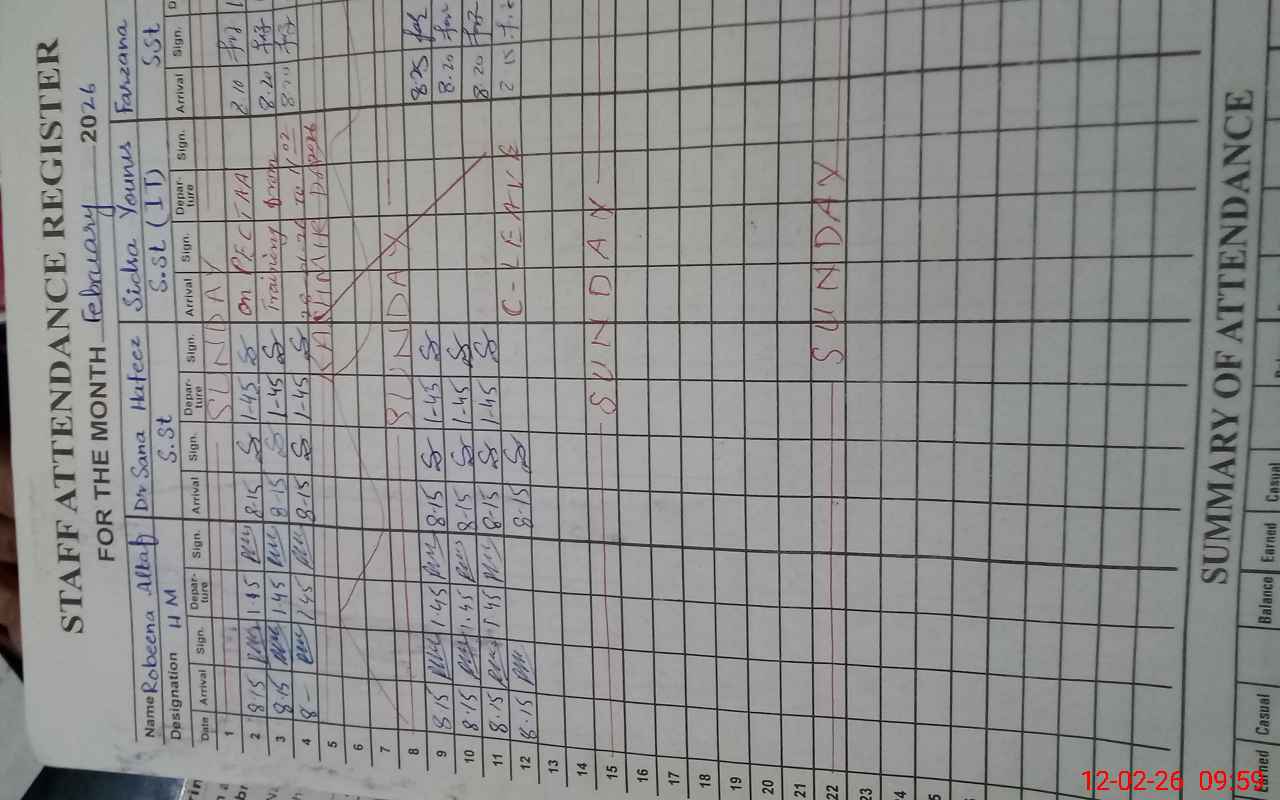 STAFF ATTENDANCE REGISTER
FOR THE MONTH February 2026
Name Robeena Altaf Dr Sana Hafeez Sidra Younis Farzana
Designation H M S.St S.St (IT) SSt
Date Arrival Sign. Depar-ture Sign. Arrival Sign. Depar-ture Sign. Arrival Sign. Depar-ture Sign. Arrival Sign.
1 SUNDAY
2 8.15 1.45 8-15 1-45 On PECTAA 8.10
3 8.15 1.45 8-15 1-45 Training from 8.20
4 8- 1.45 8-15 1-45 to 02
5 KASHMIR DAY
6
7
8 SUNDAY
9 8.15 1.45 8-15 1-45 8.25
10 8.15 1.45 8-15 1-45 8.20
11 8.15 1.45 8-15 1-45 8.20
12 8.15 8-15 C-LEAVE
13
14
15 SUNDAY
16
17
18
19
20
21
22 SUNDAY
23
24
25
SUMMARY OF ATTENDANCE
Earned Casual Balance Earned Casual
12-02-26 09:59